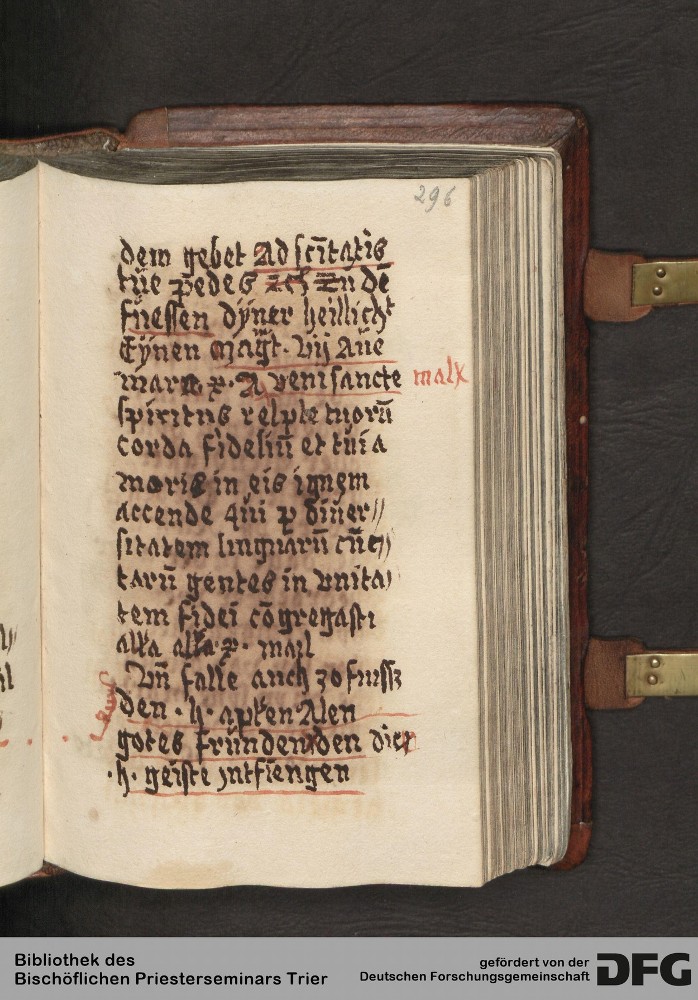 296
dem gebet Ad sc̄itatis
tue pedes ꝛcꝭ Zu dē
fuessen dyner heillicht
Eynen magt. vij Aue
maria ꝛ. A veni sancte
malx
spiritus relple tuorū
corda fideliū et tui a
moris in eis ignem
accende qui ꝑ diuer//
sitatem linguarū cūc//
tarū gentes in vnita/
tem fidei cōgregasti
alła alła ꝛ. mail
Vn̄ falle auch zo fuissz
den . h. aplen Alen
gotes frūnden den dier
.h. geiste yntfiengen
Bibliothek des
Bischöflichen Priesterseminars Trier
gefördert von der
Deutschen Forschungsgemeinschaft
DFG